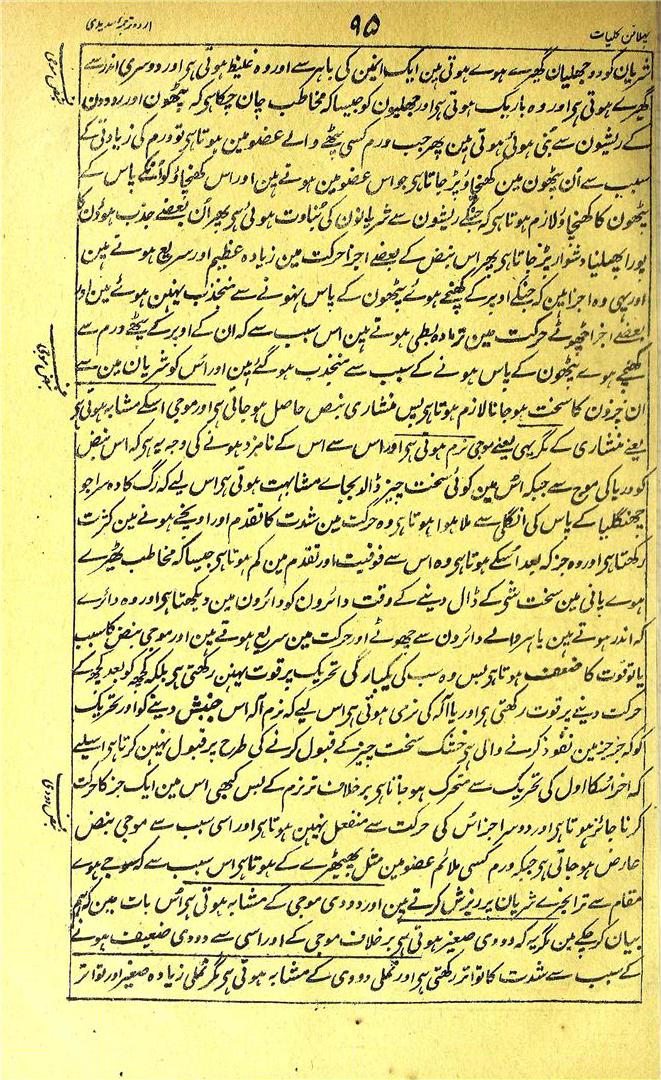 اردو ترجمہ سدیدی
۹۵
بیان کلیات
شریان کو دو جھلیان گھیرے ہوے ہوتی ہین ایک انمین کی باہر سے اور وہ غلیظ ہوتی ہی اور دوسری اندر سے
گھیرے ہوتی ہی اور وہ باریک ہوتی ہی اور جھلیون کو جیسا کہ مخاطب جان چکا ہی کہ پٹھون اور رودون
کے ریشون سے بنی ہوئی ہوتی ہین پھر جب ورم کسی پٹھے والے عضو مین ہوتا ہی تو ورم کی زیادتی کے
سبب سے اُن پٹھون مین کھنچاو پڑ جاتا ہی جو اس عضو مین ہوتے ہین اور اس کھنچاو کو اُنکے پاس کے
پٹھون کا کھنچاو لازم ہوتا ہی کہ جنکے ریشون سے شریانون کی بناوت ہوئی ہی پھر اُن بعضے جذب ہوون کا
پورا پھیلنا دشوار پڑ جاتا ہی پھر اس نبض کے بعضے اجزا حرکت مین زیادہ عظیم اور سریع ہوتے ہین
اور یہی وہ اجزا ہین کہ جنکے اوپر کے کھنچے ہوئے پٹھون کے پاس نہونے سے منجذب نہین ہوئے ہین اور
بعضے اجزا چھوٹے حرکت مین زیادہ بطی ہوتے ہین اس سبب سے کہ ان کے اوپر کے پٹھے ورم سے
کھنچے ہوے پٹھون کے پاس ہونے کے سبب سے منجذب ہو گئے ہین اور اس کو شریان مین سے
ان جزون کا سخت ہو جانا لازم ہوتا ہی پس منشاری نبض حاصل ہو جاتی ہی اور موجی اسکے مشابہ ہوتی ہی
یعنے منشاری کے مگر یہی یعنے موجی نرم ہوتی ہی اور اس سے اس کے نامزد ہونے کی وجہ یہ ہی کہ اس نبض
کو دریا کی موج سے جبکہ اس مین کوئی سخت چیز ڈالدیجاے مشابہت ہوتی ہی اس لیے کہ رگ کا وہ سرا جو
چھنگلیا کے پاس کی انگلی سے ملا ہوا ہوتا ہی وہ حرکت مین شدت کا تقدم اور اونچے ہونے مین کثرت
رکھتا ہی اور وہ جز کہ بعد اُسکے ہوتا ہی وہ اس سے فوقیت اور تقدم مین کم ہوتا ہی جیسا کہ مخاطب ٹھیرے
ہوے پانی مین سخت شی کے ڈال دینے کے وقت دائرون کو دائرون مین دیکھتا ہی اور وہ دائرے
کہ اندر ہوتے ہین باہر والے دائرون سے چھوٹے اور حرکت مین سریع ہوتے ہین اور موجی نبض کا سبب
یا قوت کا ضعف ہوتا ہی پس وہ سب کی یکبارگی تحریک پر قوت نہین رکھتی ہی بلکہ کچھ کو بعد کچھ کے
حرکت دینے پر قوت رکھتی ہی اور یا آلہ کی نرمی ہوتی ہی اس لیے کہ نرم آلہ اس جنبش دینے کو اور تحریک
کو کہ جز جز مین نفوذ کرنے والی ہی خشک سخت چیز کے قبول کرنے کی طرح پر قبول نہین کرتا ہی اسلیے
کہ آخر اسکا اول کی تحریک سے متحرک ہو جاتا ہی برخلاف تر نرم کے پس کبھی اس مین ایک جز کا حرکت
کرنا جائز ہوتا ہی اور دوسرا جز اس کی حرکت سے منفعل نہین ہوتا ہی اور اسی سبب سے موجی نبض
عارض ہو جاتی ہی جبکہ ورم کسی ملائم عضو مین مثل پھیپھڑے کے ہوتا ہی اس سبب سے کہ سوجے ہوے
مقام سے تر ابخرے شریان پر ریزش کرتے ہین اور دودی موجی کے مشابہ ہوتی ہی اس بات مین کہ ہم
بیان کر چکے ہین مگر یہ کہ دودی صغیر ہوتی ہی برخلاف موجی کے اور اسی سے دودی ضعیف ہونے
کے سبب سے شدت کا تواتر رکھتی ہی اور نملی دودی کے مشابہ ہوتی ہی مگر نملی زیادہ صغیر اور تواتر